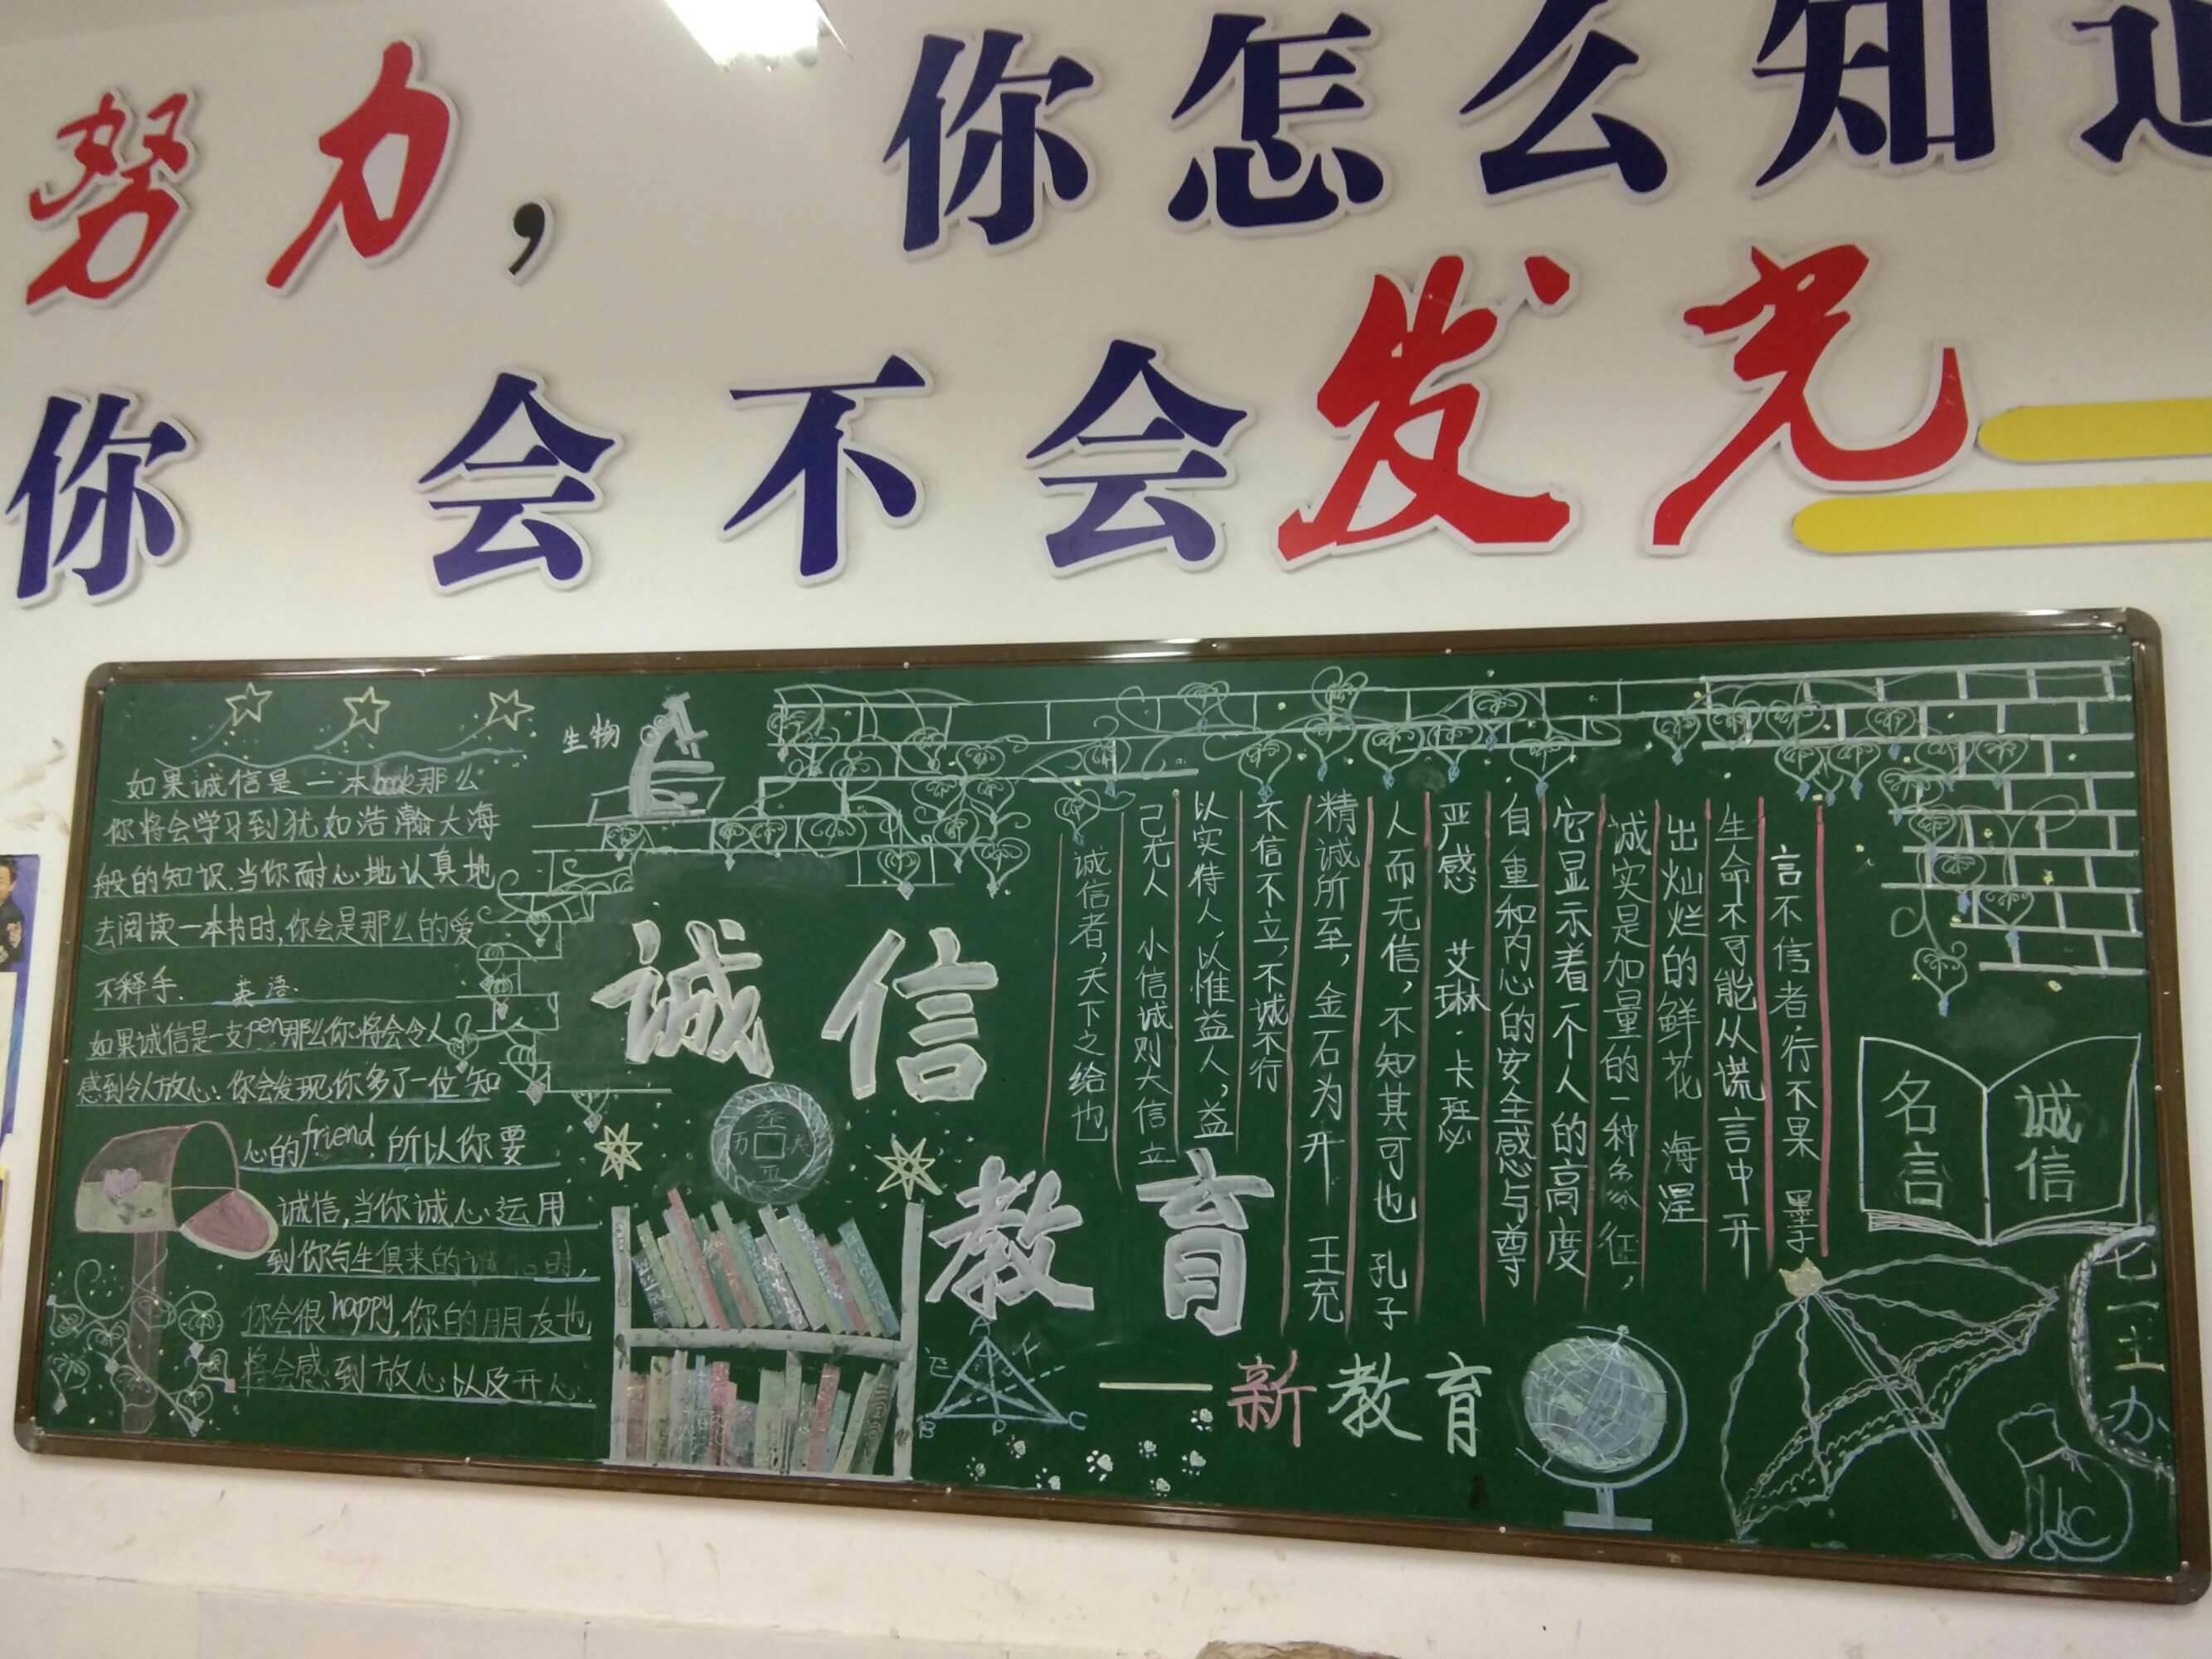 努力，你怎么知道
你会不会发光
生物
如果诚信是一本book那么
你将会学习到犹如浩瀚大海
般的知识.当你耐心地认真地
去阅读一本书时,你会是那么的爱
不释手. 英语.
如果诚信是一支pen那么你将会令人
感到令人放心:你会发现你多了一位"知
心的friend.所以你要
诚信,当你诚心运用
到你与生俱来的诚心时,
你会很happy,你的朋友也
将会感到放心以及开心.
诚信
教育
——新教育
名言
诚信
言不信者,行不果 墨子
生命不可能从谎言中开
出灿烂的鲜花 海涅
诚实是加量的一种象征，
它显示着一个人的高度
自重和内心的安全感与尊
严感 艾琳·卡瑟
人而无信，不知其可也 孔子
精诚所至，金石为开 王充
不信不立,不诚不行
以实待人，以惟益人，益
己无人 小信诚则大信立
诚信者，天下之给也
A
E
F
B
D
C
七一主办